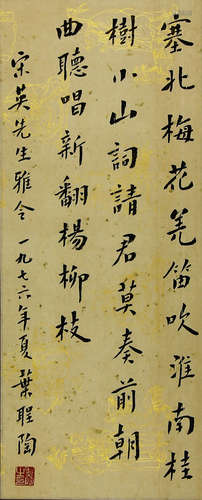 塞北梅花羌笛吹淮南桂
樹小山詞請君莫奏前朝
曲聽唱新翻楊柳枝
宋英先生雅令 一九七六年夏 葉聖陶